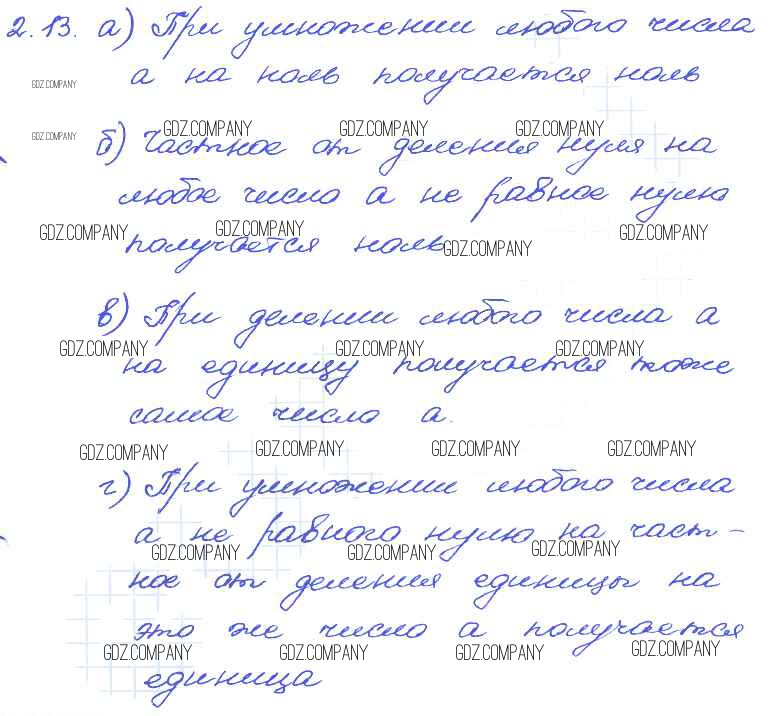 2.13. а) При умножении любого числа
а на ноль получается ноль
GDZ.COMPANY
GDZ.COMPANY GDZ.COMPANY GDZ.COMPANY GDZ.COMPANY
б) Частное от деления нуля на
любое число а не равное нулю
GDZ.COMPANY GDZ.COMPANY GDZ.COMPANY GDZ.COMPANY
получается ноль
в) При делении любого числа а
GDZ.COMPANY GDZ.COMPANY GDZ.COMPANY
на единицу получается тоже
самое число а.
GDZ.COMPANY GDZ.COMPANY GDZ.COMPANY GDZ.COMPANY
г) При умножении любого числа
а не равного нулю на част-
GDZ.COMPANY GDZ.COMPANY GDZ.COMPANY
ное от деления единицы на
это же число а получается
GDZ.COMPANY GDZ.COMPANY GDZ.COMPANY GDZ.COMPANY
единица